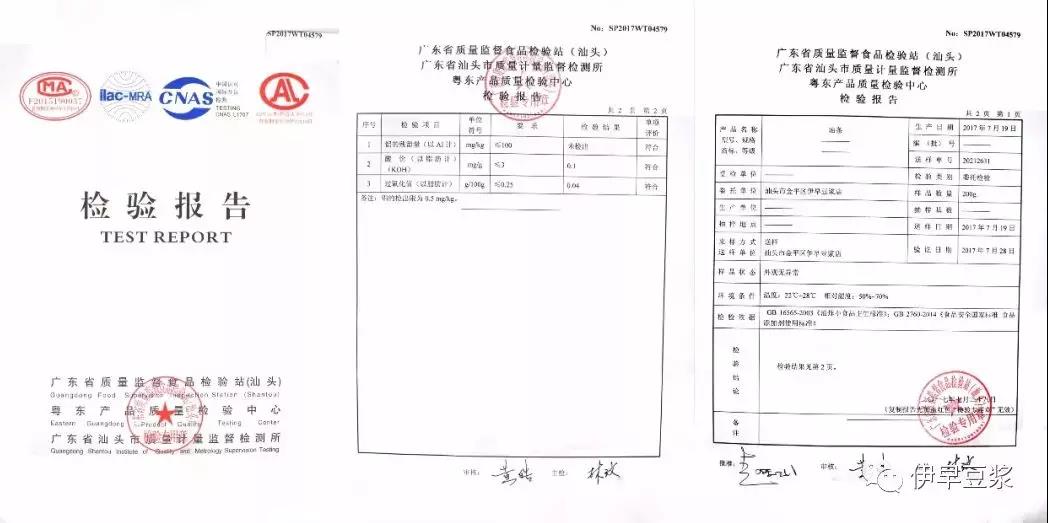 SP2017WT04579
MA
F20151900037
ilac-MRA
CNAS
TESTING
CNAS L1707
检验报告
TEST REPORT
广东省质量监督食品检验站(汕头)
Guangdong Food Supervision Inspection Station (Shantou)
粤东产品质量检验中心
Eastern Guangdong Product Quality Testing Center
广东省汕头市质量计量监督检测所
Guangdong Shantou Institute of Quality and Metrology Supervision Testing
检验专用章
No: SP2017WT04579
广东省质量监督食品检验站（汕头）
广东省汕头市质量计量监督检测所
粤东产品质量检验中心
检验报告
检验专用章
共 2 页 第 2 页
序号 检验项目 单位符号 要求 检验结果 单项评价
1 铝的残留量（以 Al 计） mg/kg ≤100 未检出 符合
2 酸价（以脂肪计）(KOH) mg/g ≤3 0.1 符合
3 过氧化值（以脂肪计） g/100g ≤0.25 0.04 符合
备注：铝的检出限为 0.5 mg/kg。
审核： 主检：
No: SP2017WT04579
广东省质量监督食品检验站（汕头）
广东省汕头市质量计量监督检测所
粤东产品质量检验中心
检验报告
共 2 页 第 1 页
产品名称 油条 生产日期 2017年7月19日
型号、规格 编（批）号
商标、等级 送样单号 20212631
受检单位 检验类别 委托检验
委托单位 汕头市金平区伊早豆浆店 样品数量 200g
生产单位 抽样基数
抽样地点 送样日期 2017年7月19日
来样方式 送样
送样单位 汕头市金平区伊早豆浆店 验讫日期 2017年7月28日
样品状态 外观无异常
环境条件 温度：22℃~28℃ 相对湿度：50%~70%
检验依据 GB 16565-2003《油炸小食品卫生标准》；GB 2760-2014《食品安全国家标准 食品
添加剂使用标准》
检验结论 检验结果见第 2 页。
二〇一七年七月二十八日
（复制报告未重盖红色“检验专用章”无效）
检验专用章
备注
批准： 审核：
伊早豆浆